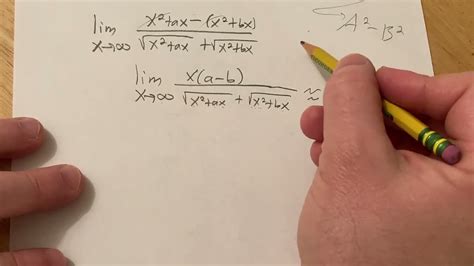 lim x→∞ (x²+ax − (x²+bx)) / (√(x²+ax) + √(x²+bx))
A² − B²
lim x→∞ x(a−b) / (√(x²+ax) + √(x²+bx)) ≈